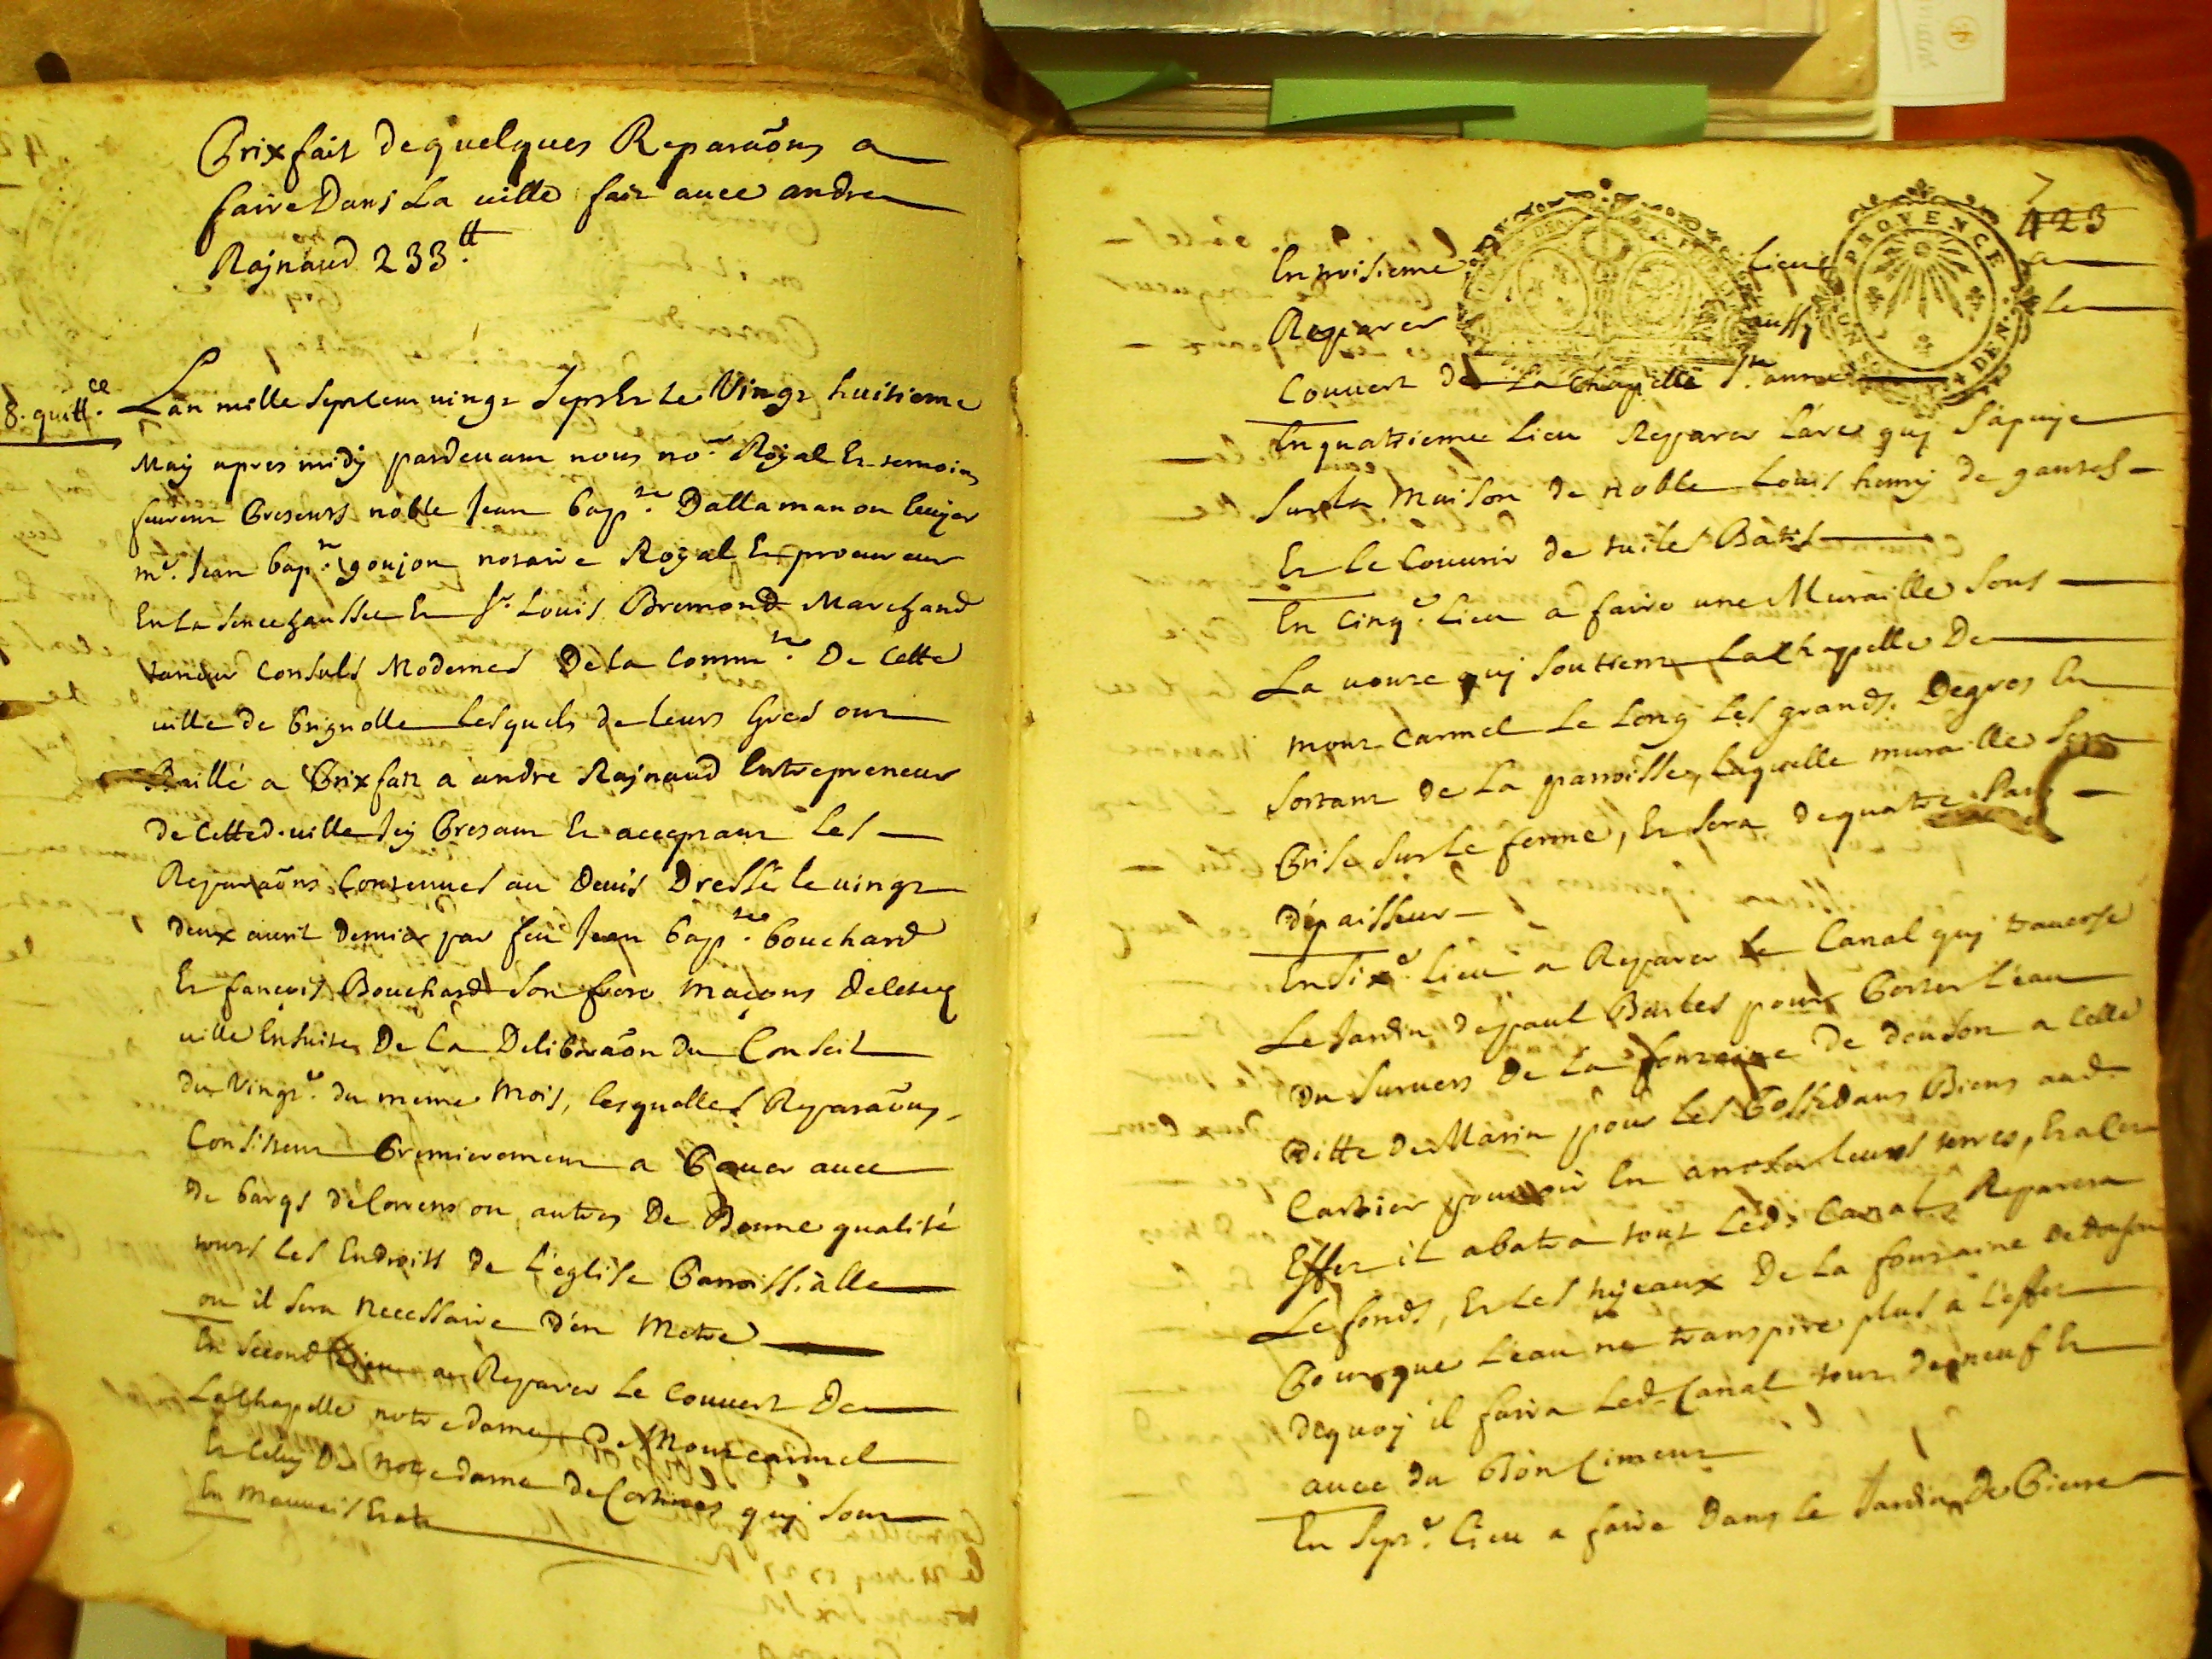 Prixfait de quelques Reparaõns a
faire Dans La ville fait avec andre
Rajnaud 233.tt
8. quitt.ce
L'an mille septcens vingt sept Et Le Vingt huitieme
May apres midy pardevant nous no.re Royal Et temoins
furent Presents noble Jean bap.te Dallamanon Ecuyer
m.e Jean bap.te goujon notaire Royal Et procureur
En La senechaussee Et s.r Louis Bremond Marchand
taneur Consuls Modernes De La Comm.té De Cette
ville de brignolle Lesquels de Leurs Gres ont
Baillé a Prixfait a andre Rajnaud Entrepreneur
de Cette d. ville Icy Present Et acceptant Les
Reparaõns Contenues au Devis Dressé le vingt
deux avril dernier par feu Jean bap.te bouchard
Et françois Bouchard son frere maçons de cette
ville Ensuite De La Deliberaõn Du Conseil
du Vingt.e du meme mois, lesquelles Reparaõns
Consistent Premierement a Paver avec
De barqs de Correns ou autres De Bonne qualité
tous Les Endroits de L'eglise Parroissialle
ou il sera necessaire D'en Metre
En second Lieu a Reparer Le Couvert De
La Chapelle notre dame de Mont carmel
Et Celuy De notre dame de quj sont
En mauvais Etat
7
423
PROVENCE
DEN.
En troisieme Lieu a
Reparer aussy le
Couvert de La Chapelle S.te anne
En quatrieme Lieu Reparer L'arc quj s'apuye
sur la Maison de noble Louis henry de gantes
Et Le Couvrir de tuiles Batis
En Cinq.e Lieu a faire une Muraille sous
La voute quj soutient La Chappelle De
mont Carmel Le Long Les grands Degres En
sortant de La parroisse, Laquelle muraille sera
Prise sur Le ferme, Et sera de quatre Pans
d'épaisseur
En six.e Lieu a Reparer Le Canal quj traverse
Le Jardin de paul Barles pour Porter L'eau
Du survers De La fontaine De a Celle
Ditte de Marin pour Les Possedans Biens aud.
Cartier pouvoir En arroser Leurs terres, Et a Cet
Effet il abatra tout Led. Canal Reparera
Le fonds, Et Les tujeaux De La fontaine
Pour que L'eau ne transpire plus a L'effet
dequoj il faira Led. Canal tout de neuf Et
avec du Bon Ciment
En sept.e Lieu a faire Dans Le Jardin De Pierre